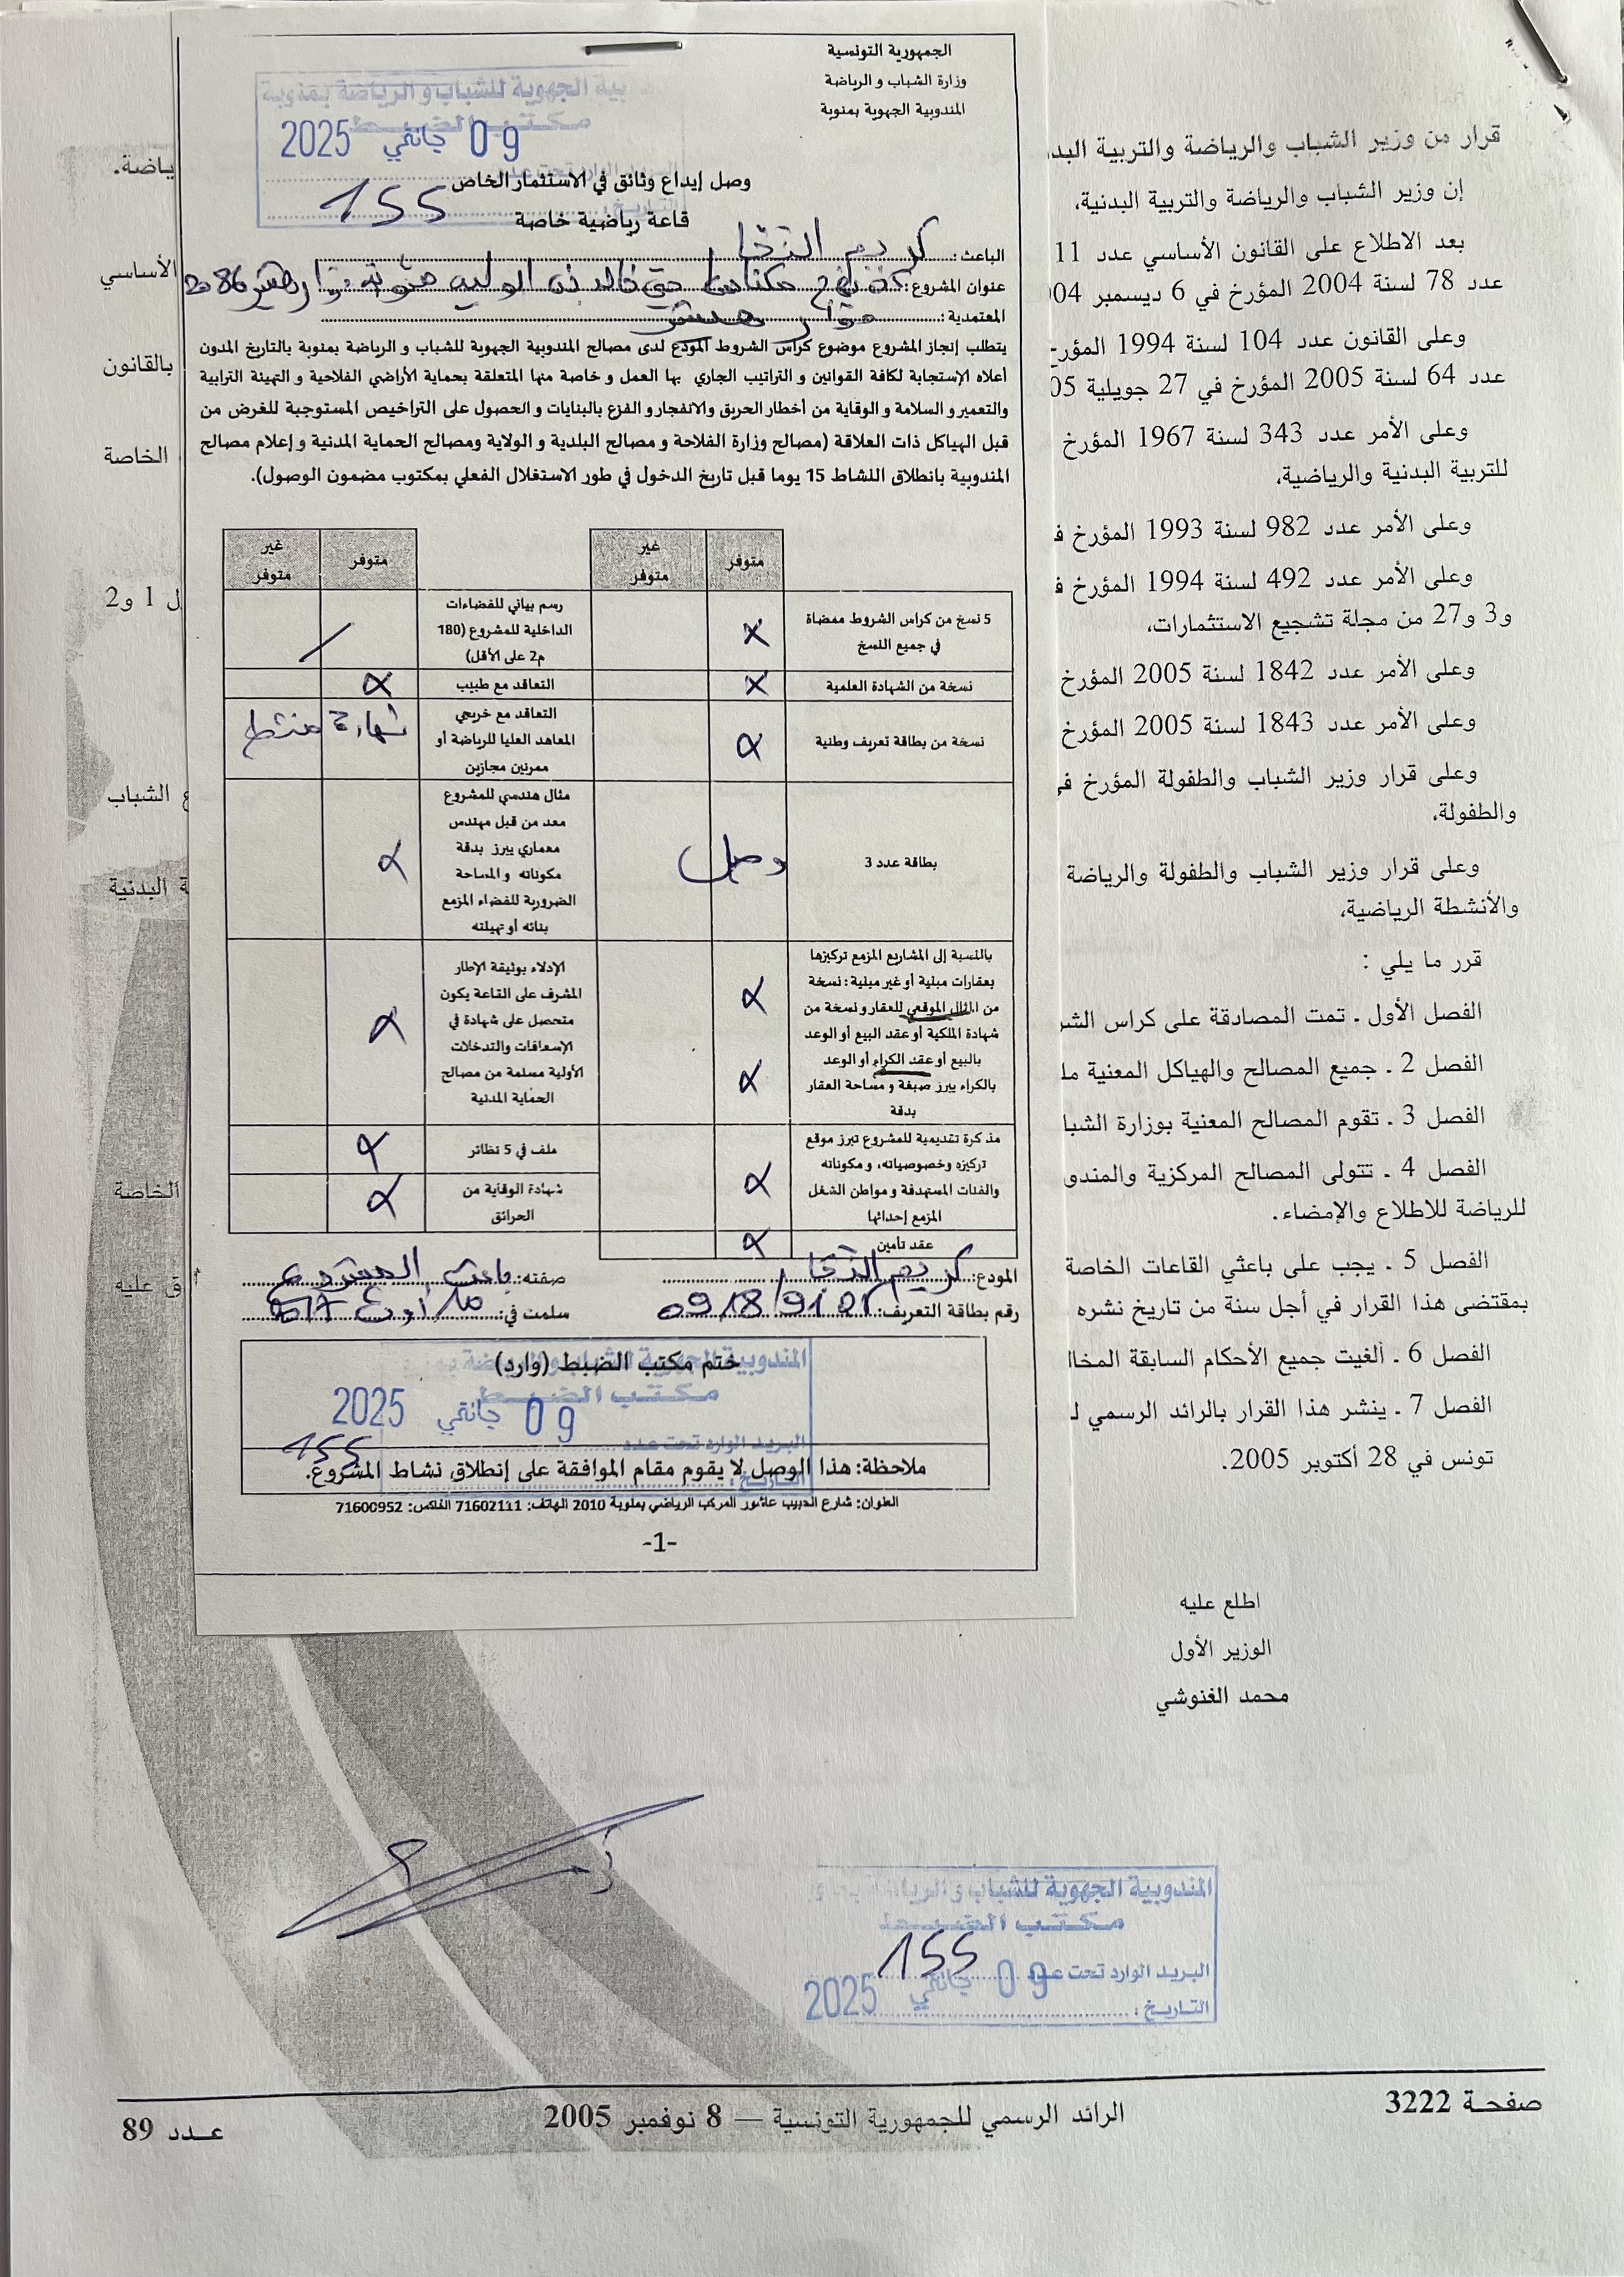 الجمهورية التونسية
وزارة الشباب و الرياضة
المندوبية الجهوية بمنوبة
بية الجهوية للشباب و الرياضة بمنوبة
مكتب الضبط
09 جانفي 2025
155
وصل إيداع وثائق في الاستثمار الخاص
قاعة رياضية خاصة
الباعث: كريم
عنوان المشروع:
المعتمدية: دوار هيشر
يتطلب إنجاز المشروع موضوع كراس الشروط المودع لدى مصالح المندوبية الجهوية للشباب و الرياضة بمنوبة بالتاريخ المدون
أعلاه الإستجابة لكافة القوانين و التراتيب الجاري بها العمل و خاصة منها المتعلقة بحماية الأراضي الفلاحية و التهيئة الترابية
والتعمير و السلامة و الوقاية من أخطار الحريق والانفجار و الفزع بالبنايات و الحصول على التراخيص المستوجبة للغرض من
قبل الهياكل ذات العلاقة (مصالح وزارة الفلاحة و مصالح البلدية و الولاية ومصالح الحماية المدنية و إعلام مصالح
المندوبية بانطلاق النشاط 15 يوما قبل تاريخ الدخول في طور الاستغلال الفعلي بمكتوب مضمون الوصول).
متوفر
غير
متوفر
متوفر
غير
متوفر
5 نسخ من كراس الشروط ممضاة
في جميع النسخ
X
رسم بياني للفضاءات
الداخلية للمشروع (180
م2 على الأقل)
نسخة من الشهادة العلمية
X
التعاقد مع طبيب
X
نسخة من بطاقة تعريف وطنية
X
التعاقد مع خريجي
المعاهد العليا للرياضة أو
ممرنين مجازين
شهادة منشط
بطاقة عدد 3
وصل
مثال هندسي للمشروع
معد من قبل مهندس
معماري يبرز بدقة
مكوناته و المساحة
الضرورية للفضاء المزمع
بنائه أو تهيئته
X
بالنسبة إلى المشاريع المزمع تركيزها
بعقارات مبنية أو غير مبنية: نسخة
من المثال الموقعي للعقار و نسخة من
شهادة الملكية أو عقد البيع أو الوعد
بالبيع أو عقد الكراء أو الوعد
بالكراء يبرز صبغة و مساحة العقار
بدقة
X
X
الإدلاء بوثيقة الإطار
المشرف على القاعة يكون
متحصل على شهادة في
الإسعافات والتدخلات
الأولية مسلمة من مصالح
الحماية المدنية
X
مذكرة تقديمية للمشروع تبرز موقع
تركيزه وخصوصياته، و مكوناته
والفئات المستهدفة و مواطن الشغل
المزمع إحداثها
X
ملف في 5 نظائر
X
شهادة الوقاية من
الحرائق
X
عقد تأمين
X
المودع: كريم
صفته: باعث المشروع
رقم بطاقة التعريف:
سلمت في: أوت
ختم مكتب الضبط (وارد)
المندوبية الجهوية للشباب و الرياضة بمنوبة
مكتب الضبط
09 جانفي 2025
البريد الوارد تحت عدد
155
التاريخ:
ملاحظة: هذا الوصل لا يقوم مقام الموافقة على إنطلاق نشاط المشروع.
العنوان: شارع الحبيب عاشور المركب الرياضي بمنوبة 2010 الهاتف: 71602111 الفاكس: 71600952
-1-
قرار من وزير الشباب والرياضة والتربية البد
ياضة.
إن وزير الشباب والرياضة والتربية البدنية،
بعد الاطلاع على القانون الأساسي عدد 11
الأساسي
عدد 78 لسنة 2004 المؤرخ في 6 ديسمبر 04
وعلى القانون عدد 104 لسنة 1994 المؤرخ
بالقانون
عدد 64 لسنة 2005 المؤرخ في 27 جويلية 05
وعلى الأمر عدد 343 لسنة 1967 المؤرخ
الخاصة
للتربية البدنية والرياضية،
وعلى الأمر عدد 982 لسنة 1993 المؤرخ ف
وعلى الأمر عدد 492 لسنة 1994 المؤرخ ف
ل 1 و2
و3 و27 من مجلة تشجيع الاستثمارات،
وعلى الأمر عدد 1842 لسنة 2005 المؤرخ
وعلى الأمر عدد 1843 لسنة 2005 المؤرخ
وعلى قرار وزير الشباب والطفولة المؤرخ في
ع الشباب
والطفولة،
وعلى قرار وزير الشباب والطفولة والرياضة
ة البدنية
والأنشطة الرياضية،
قرر ما يلي :
الفصل الأول ـ تمت المصادقة على كراس الشر
الفصل 2 ـ جميع المصالح والهياكل المعنية مل
الفصل 3 ـ تقوم المصالح المعنية بوزارة الشبا
الفصل 4 ـ تتولى المصالح المركزية والمندو
الخاصة
للرياضة للاطلاع والإمضاء.
الفصل 5 ـ يجب على باعثي القاعات الخاصة
ق عليه
بمقتضى هذا القرار في أجل سنة من تاريخ نشره
الفصل 6 ـ ألغيت جميع الأحكام السابقة المخال
الفصل 7 ـ ينشر هذا القرار بالرائد الرسمي لـ
تونس في 28 أكتوبر 2005.
اطلع عليه
الوزير الأول
محمد الغنوشي
المندوبية الجهوية للشباب و الرياضة
مكتب الضبط
البريد الوارد تحت عدد 155
09 جانفي 2025
التاريخ:
صفحة 3222
الرائد الرسمي للجمهورية التونسية — 8 نوفمبر 2005
عـدد 89